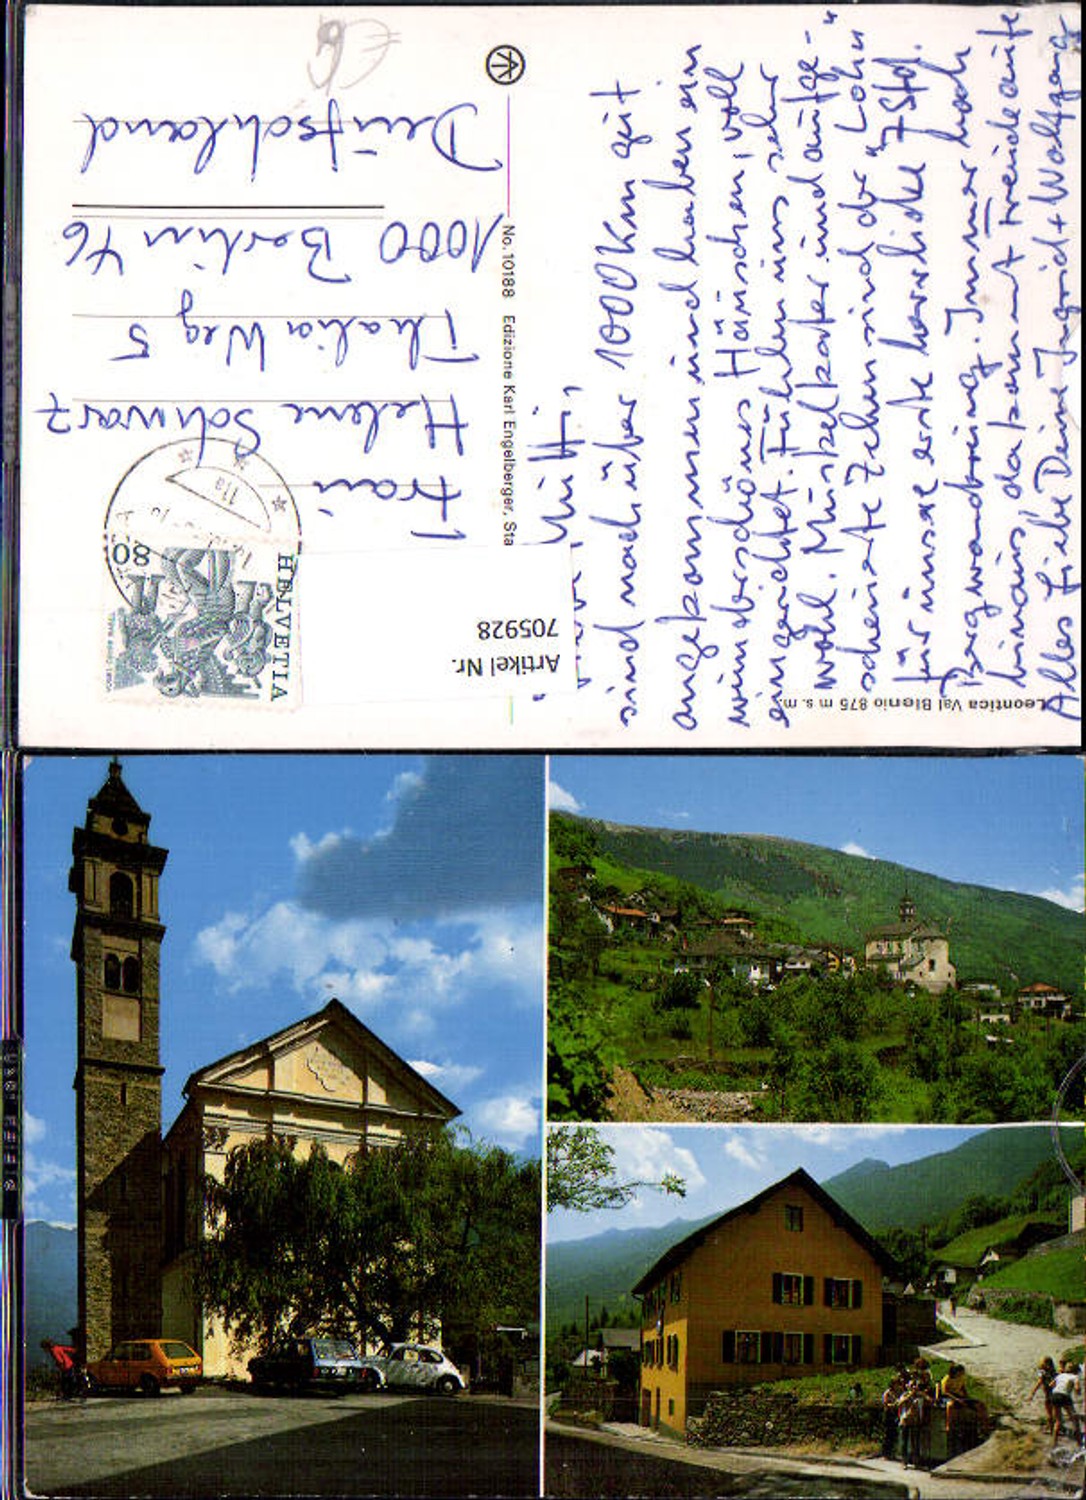 Leontica Val Blenio 875 m s.m.
Mutti,
sind nach über 1000 Km gut
angekommen und haben ein
wunderschönes Häuschen, voll
eingerichtet. Fühlen uns sehr
wohl. Muskelkater und aufge-
scheuerte Zehen sind der "Lohn"
für unsere erste herrliche 7 Std.
Bergwanderung. Immer hoch
hinaus, da kommt Freude auf
Alles Liebe Deine Ingrid + Wolfgang
No. 10188 Edizione Karl Engelberger, Sta
Artikel Nr.
705928
HELVETIA
80
11a
Frau
Helene Schwarz
Thalia Weg 5
1000 Berlin 46
Deutschland